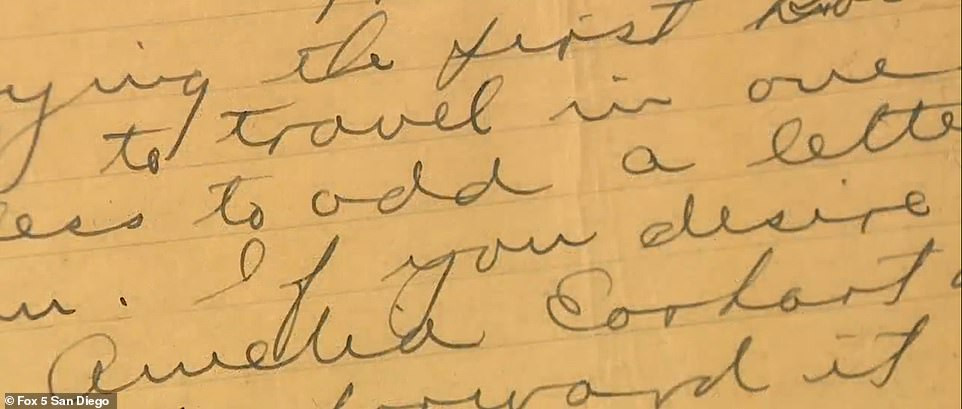 ying the first
to travel in one
less to add a lette
If you desire
Amelia Earhart
forward it
© Fox 5 San Diego